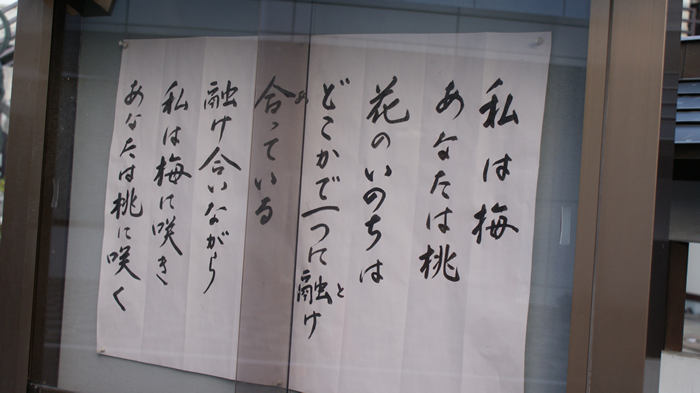 私は梅
あなたは桃
花のいのちは
どこかで一つに融け
合っている
融け合いながら
私は梅に咲き
あなたは桃に咲く